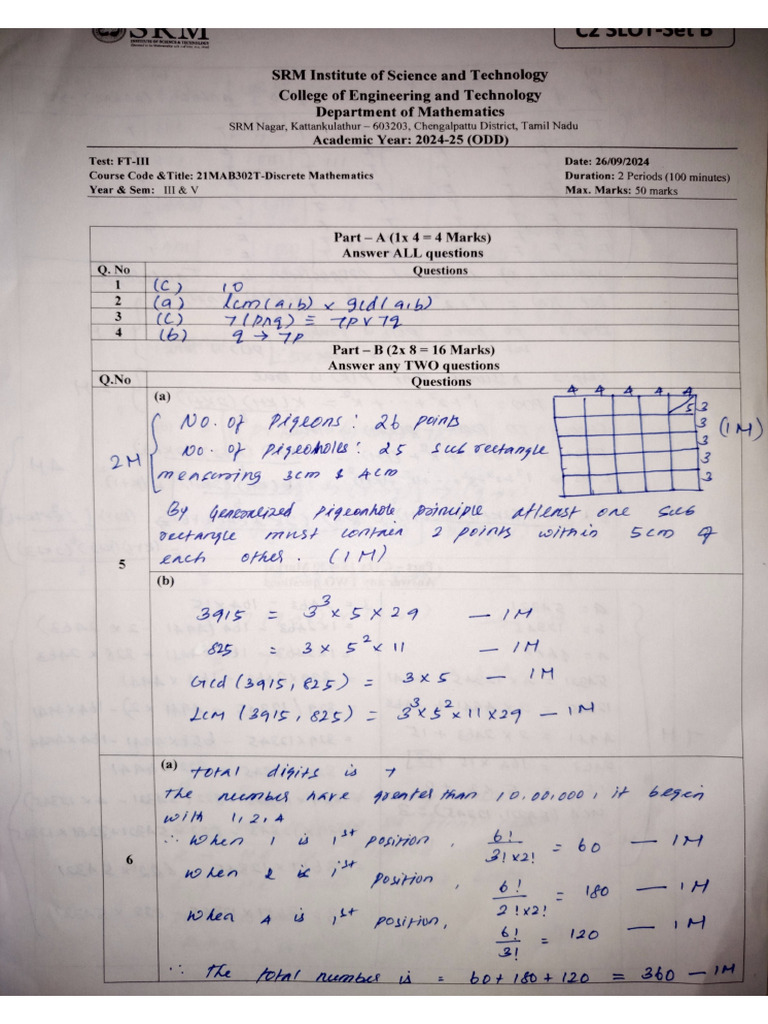 SRM
INSTITUTE OF SCIENCE & TECHNOLOGY
C2 SLOT-Set B
SRM Institute of Science and Technology
College of Engineering and Technology
Department of Mathematics
SRM Nagar, Kattankulathur – 603203, Chengalpattu District, Tamil Nadu
Academic Year: 2024-25 (ODD)
Test: FT-III Date: 26/09/2024
Course Code &Title: 21MAB302T-Discrete Mathematics Duration: 2 Periods (100 minutes)
Year & Sem: III & V Max. Marks: 50 marks
Part – A (1x 4 = 4 Marks)
Answer ALL questions
Q. No Questions
1 (c) 10
2 (a) lcm(a,b) × gcd(a,b)
3 (c) ¬(p∧q) ≡ ¬p∨¬q
4 (b) q → ¬p
Part – B (2x 8 = 16 Marks)
Answer any TWO questions
Q.No Questions
(a) 4 4 4 4 4
5 3
3
3
3
3
No. of pigeons: 26 points (1M)
No. of pigeonholes: 25 sub rectangle
2M measuring 3cm & 4cm
By Generalized pigeonhole principle atleast one sub
rectangle must contain 2 points within 5cm of
each other. (1M)
5
(b)
3915 = 3³ × 5 × 29 — 1M
825 = 3 × 5² × 11 — 1M
Gcd (3915, 825) = 3 × 5 — 1M
Lcm (3915, 825) = 3³ × 5² × 11 × 29 — 1M
(a) Total digits is 7
The number have greater than 10,00,000, it begin
with 1, 2, 4
6
∴ When 1 is 1st position, 6!/3!×2! = 60 — 1M
When 2 is 1st position, 6!/2!×2! = 180 — 1M
When 4 is 1st position, 6!/3! = 120 — 1M
∴ The total number is = 60 + 180 + 120 = 360 — 1M